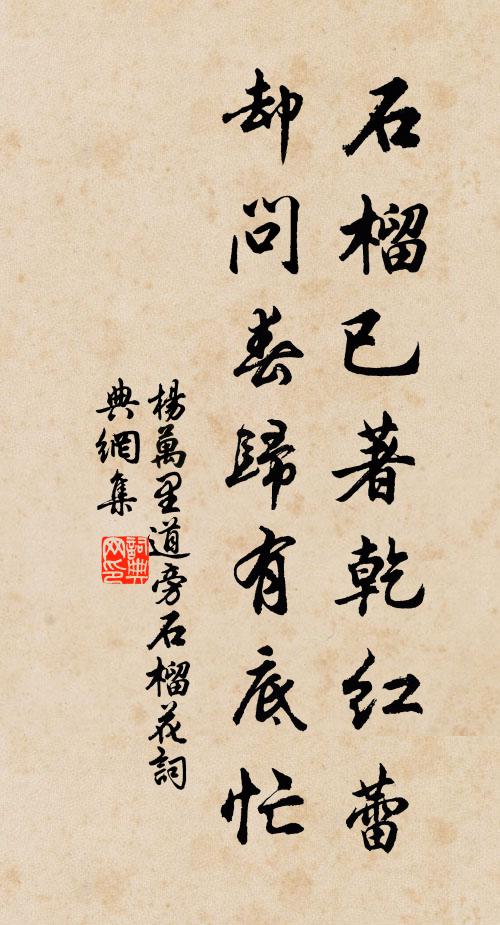 石榴已著乾红蕾
却問春歸有底忙
楊萬里道旁石榴花詞
典網集
詞典網印